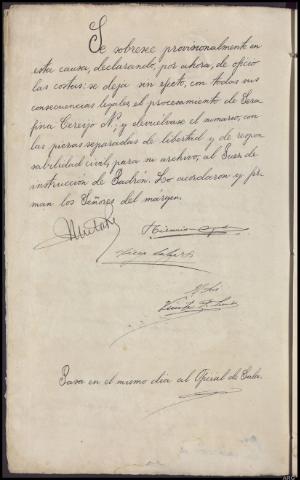 Se sobresee provisionalmente en
esta causa, declarando, por ahora, de oficio
las costas: se deja sin efecto, con todas sus
consecuencias legales el procesamiento de Sera
fina Cereijo Nº, y devuélvase el sumario, con
las piezas separadas de libertad y de respon
sabilidad civil, para su archivo, al Juez de
instrucción de Padrón. Lo acordaron y fir
man los Señores del márgen.
Pasa en el mismo día al Oficial de Sala.